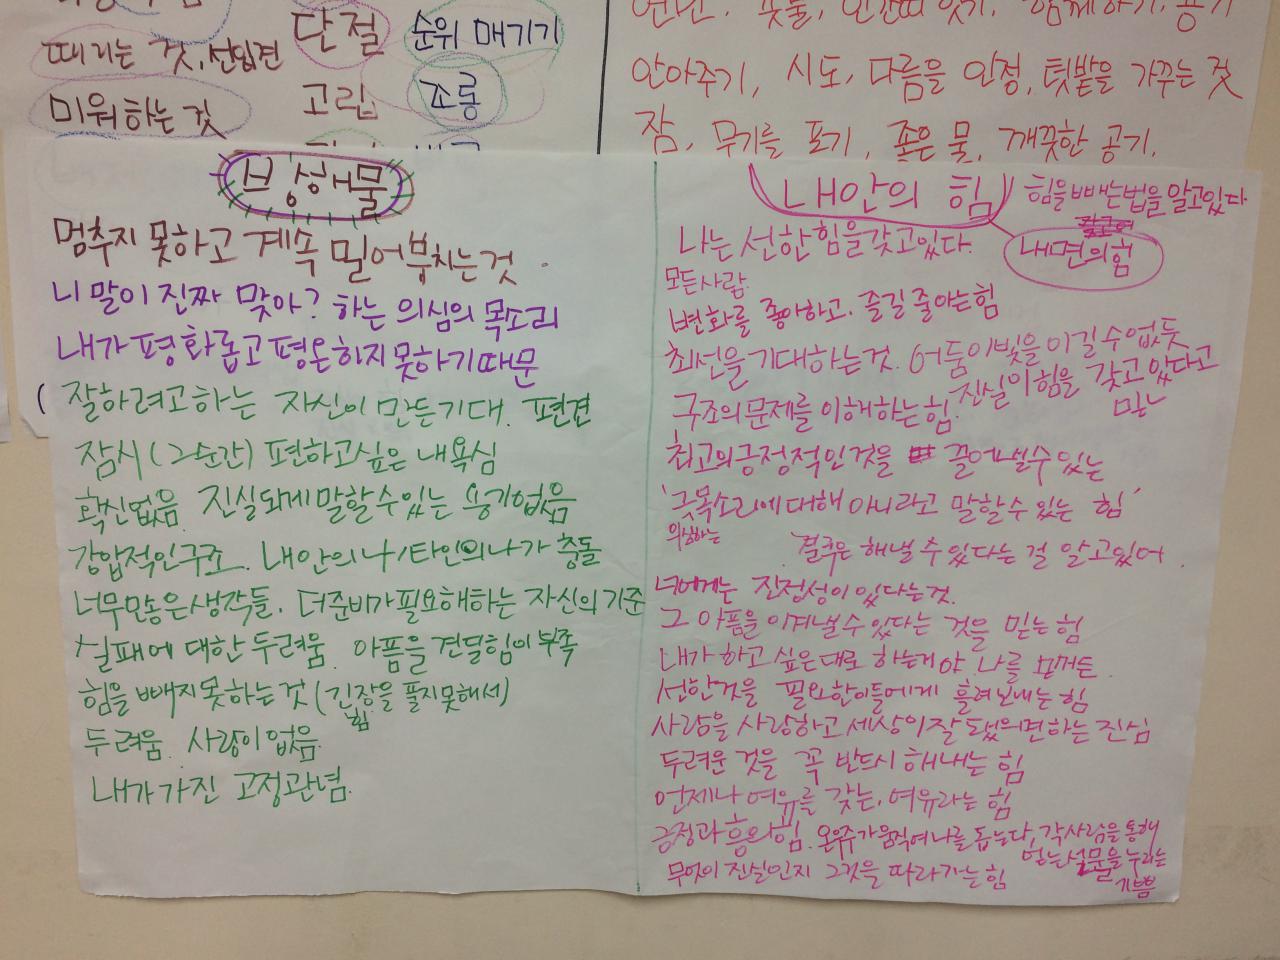 단절
순위 매기기
때리는 것, 선입견
고립
조롱
미워하는 것
안아주기, 시도, 다름을 인정, 텃밭을 가꾸는 것
잠, 무기를 포기, 좋은 물, 깨끗한 공기,
멈추지 못하고 계속 밀어붙이는 것
니 말이 진짜 맞아? 하는 의심의 목소리
내가 평화롭고 평온하지 못하기 때문
잘하려고 하는 자신이 만든 기대. 편견
잠시 (그 순간) 편하고 싶은 내 욕심
확신없음. 진실되게 말할 수 있는 용기 없음
강압적인 구조. 내 안의 나/타인의 나가 충돌
너무 많은 생각들. 더 준비가 필요해 하는 자신의 기준
실패에 대한 두려움. 아픔을 견딜 힘이 부족
힘을 빼지 못하는 것 (긴장을 풀지 못해서)
힘
두려움. 사랑이 없음
내가 가진 고정관념.
내 안의 힘
힘을 빼는 법을 알고 있다
내면의 힘
나는 선한 힘을 갖고 있다.
모든 사람
변화를 좋아하고, 즐길 줄 아는 힘
최선을 기대하는 것. 어둠이 빛을 이길 수 없듯
진실이 힘을 갖고 있다고
믿는
구조의 문제를 이해하는 힘.
최고의 긍정적인 것을 끌어낼 수 있는
'그 목소리에 대해 아니라고 말할 수 있는 힘'
의심하는
결국은 해낼 수 있다는 걸 알고 있어.
너에게는 진정성이 있다는 것.
그 아픔을 이겨낼 수 있다는 것을 믿는 힘
내가 하고 싶은 대로 하는 게 야 나를
선한 것을 필요한 이들에게 흘려 보내는 힘
사랑을 사랑하고 세상이 잘 됐으면 하는 진심
두려운 것을 꼭 반드시 해내는 힘
언제나 여유를 갖는, 여유라는 힘
긍정과 흥의 힘. 온 우주가 움직여 나를 돕는다, 각 사람을 통해
얻는 선물을 누리는
기쁨
무엇이 진실인지 그것을 따라가는 힘